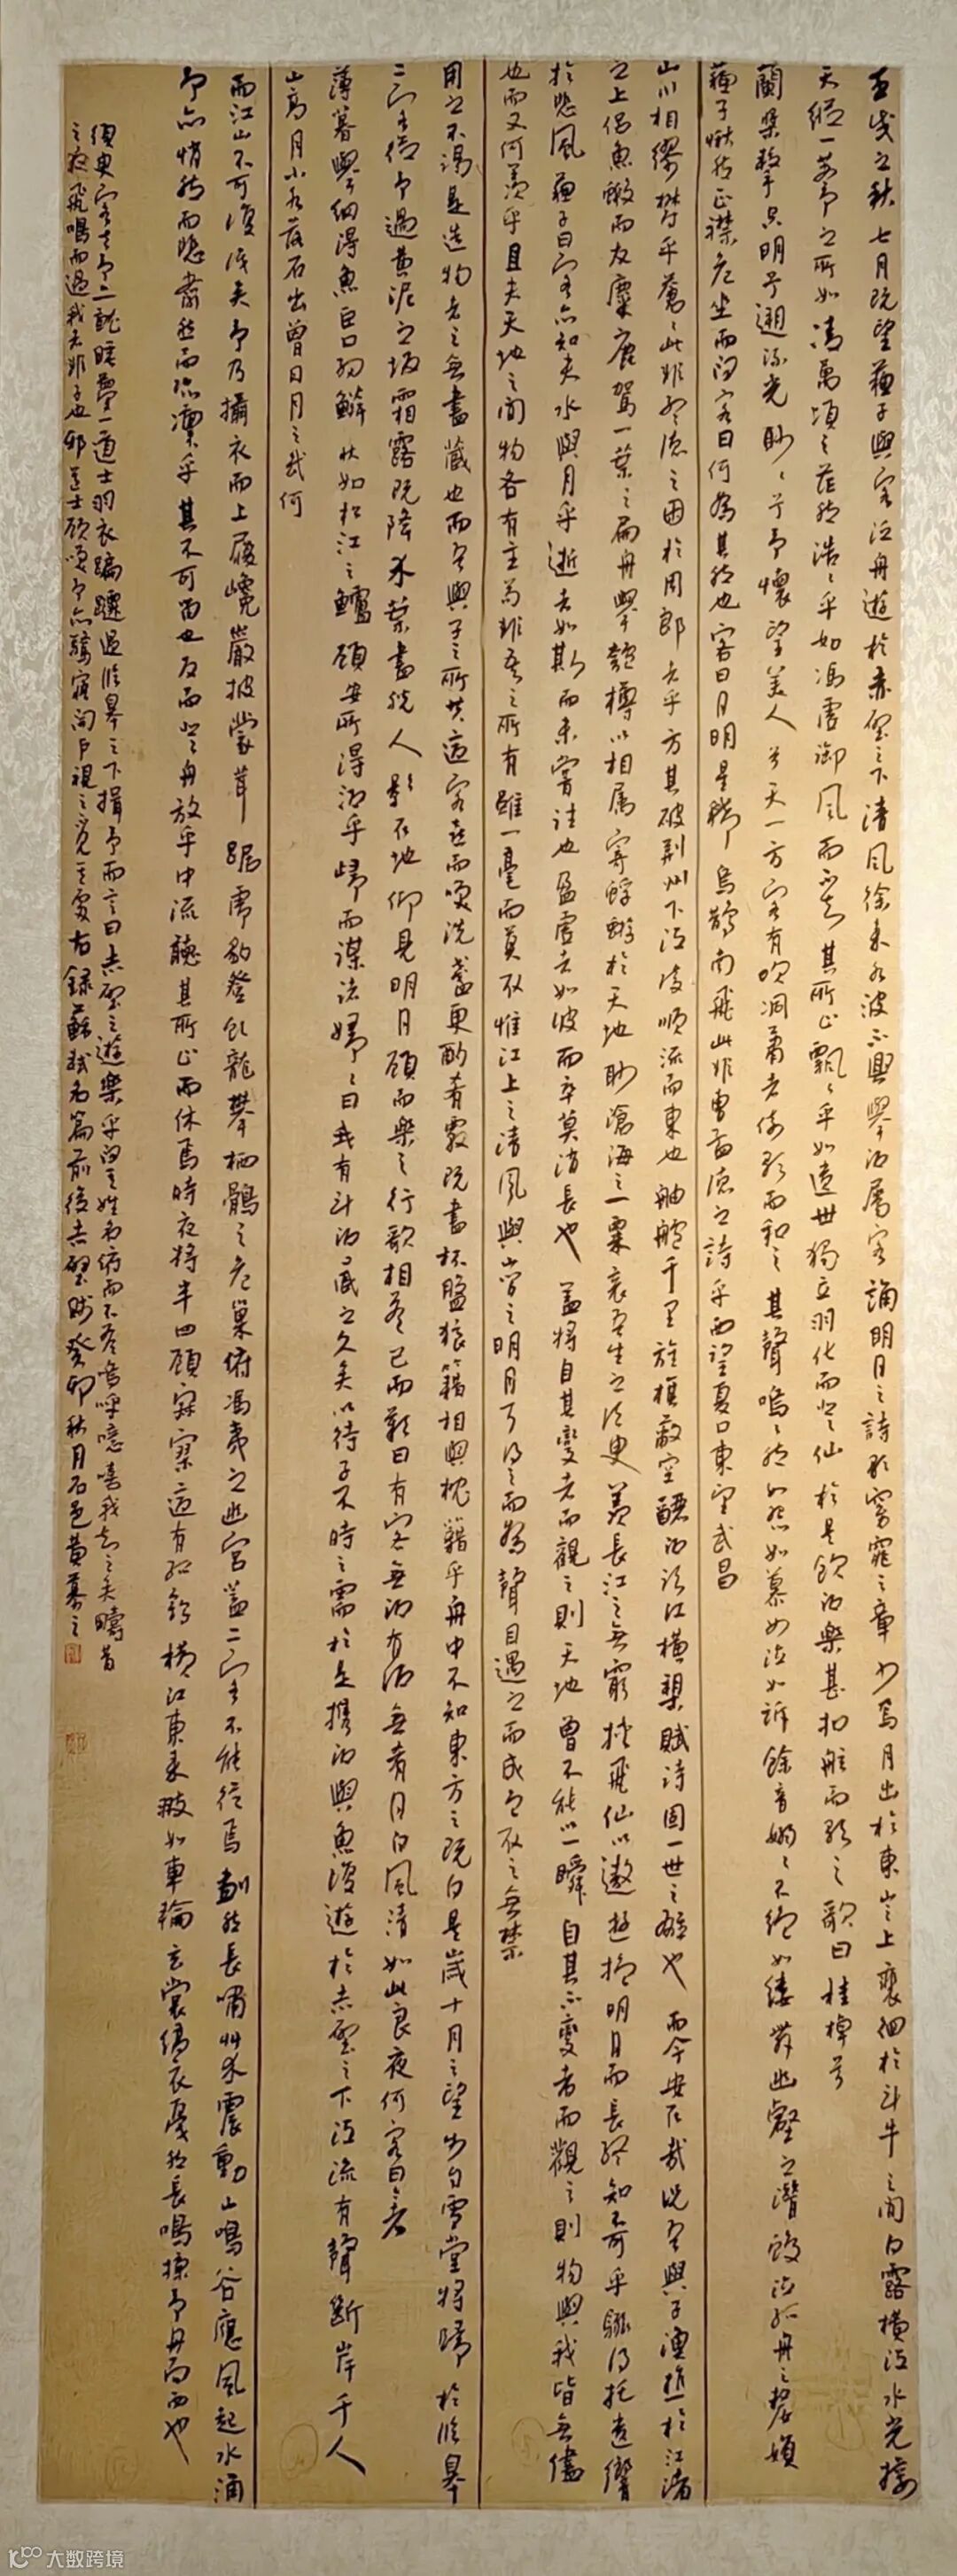 壬戌之秋七月既望蘇子與客泛舟遊於赤壁之下清風徐來水波不興舉酒屬客誦明月之詩歌窈窕之章少焉月出於東山之上裵佪於斗牛之間白露橫江水光接
天縱一葦之所如凌萬頃之茫然浩々乎如馮虛御風而不知其所止飄々乎如遺世獨立羽化而登仙於是飲酒樂甚扣舷而歌之歌曰桂棹兮
蘭槳擊空明兮遡流光眇々兮予懷望美人兮天一方客有吹洞簫者倚歌而和之其聲嗚々然如怨如慕如泣如訴餘音嫋々不絕如縷舞幽壑之潛蛟泣孤舟之嫠婦
蘇子愀然正襟危坐而問客曰何為其然也客曰月明星稀烏鵲南飛此非曹孟德之詩乎西望夏口東望武昌
山川相繆鬱乎蒼々此非孟德之困於周郎者乎方其破荊州下江陵順流而東也舳艫千里旌旗蔽空釃酒臨江橫槊賦詩固一世之雄也而今安在哉況吾與子漁樵於江渚
之上侶魚蝦而友麋鹿駕一葉之扁舟舉匏樽以相屬寄蜉蝣於天地眇滄海之一粟哀吾生之須臾羨長江之無窮挾飛仙以遨遊抱明月而長終知不可乎驟得託遺響
於悲風蘇子曰客亦知夫水與月乎逝者如斯而未嘗往也盈虛者如彼而卒莫消長也蓋將自其變者而觀之則天地曾不能以一瞬自其不變者而觀之則物與我皆無盡
也而又何羨乎且夫天地之間物各有主苟非吾之所有雖一毫而莫取惟江上之清風與山間之明月耳得之而為聲目遇之而成色取之無禁
用之不竭是造物者之無盡藏也而吾與子之所共適客喜而笑洗盞更酌肴覈既盡杯盤狼籍相與枕籍乎舟中不知東方之既白是歲十月之望步自雪堂將歸於臨皋
二客從予過黃泥之坂霜露既降木葉盡脫人影在地仰見明月顧而樂之行歌相答已而歎曰有客無酒有酒無肴月白風清如此良夜何客曰今者
薄暮舉網得魚巨口細鱗狀如松江之鱸顧安所得酒乎歸而謀諸婦々曰我有斗酒藏之久矣以待子不時之需於是攜酒與魚復遊於赤壁之下江流有聲斷岸千人
山高月小水落石出曾日月之幾何
而江山不可復識矣予乃攝衣而上履巉巖披蒙茸踞虎豹登虯龍攀栖鶻之危巢俯馮夷之幽宮蓋二客不能從焉劃然長嘯草木震動山鳴谷應風起水涌
予亦悄然而悲肅然而恐凜乎其不可留也反而登舟放乎中流聽其所止而休焉時夜將半四顧寂寥適有孤鶴橫江東來翅如車輪玄裳縞衣戛然長鳴掠予舟而西也
須臾客去予亦就睡夢一道士羽衣蹁躚過臨皋之下揖予而言曰赤壁之遊樂乎問其姓名俛而不答嗚呼噫嘻我知之矣疇昔
之夜飛鳴而過我者非子也邪道士顧笑予亦驚寤開戶視之不見其處右錄蘇軾名篇前後赤壁賦癸卯秋月石邑黃
大数跨境